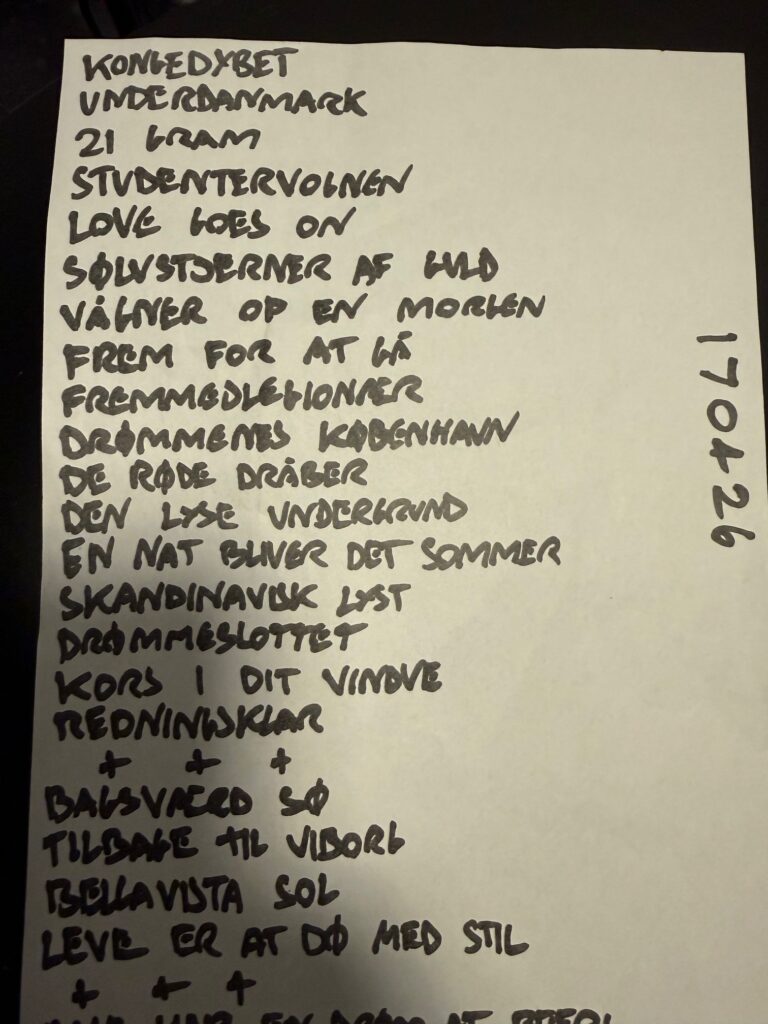 KONGEDYBET
UNDERDANMARK
21 GRAM
STUDENTERVOGNEN
LOVE GOES ON
SØLVSTJERNER AF GULD
VÅGNER OP EN MORGEN
FREM FOR AT GÅ
FREMMEDLEGIONÆR
DRØMMENES KØBENHAVN
DE RØDE DRÅBER
DEN LYSE UNDERGRUND
EN NAT BLIVER DET SOMMER
SKANDINAVISK LYST
DRØMMESLOTTET
KORS I DIT VINDUE
REDNINGSKLAR
+ + +
BAGSVÆRD SØ
TILBAGE TIL VIBORG
BELLAVISTA SOL
LEVE ER AT DØ MED STIL
+ + +
EN DRØM AT
170426